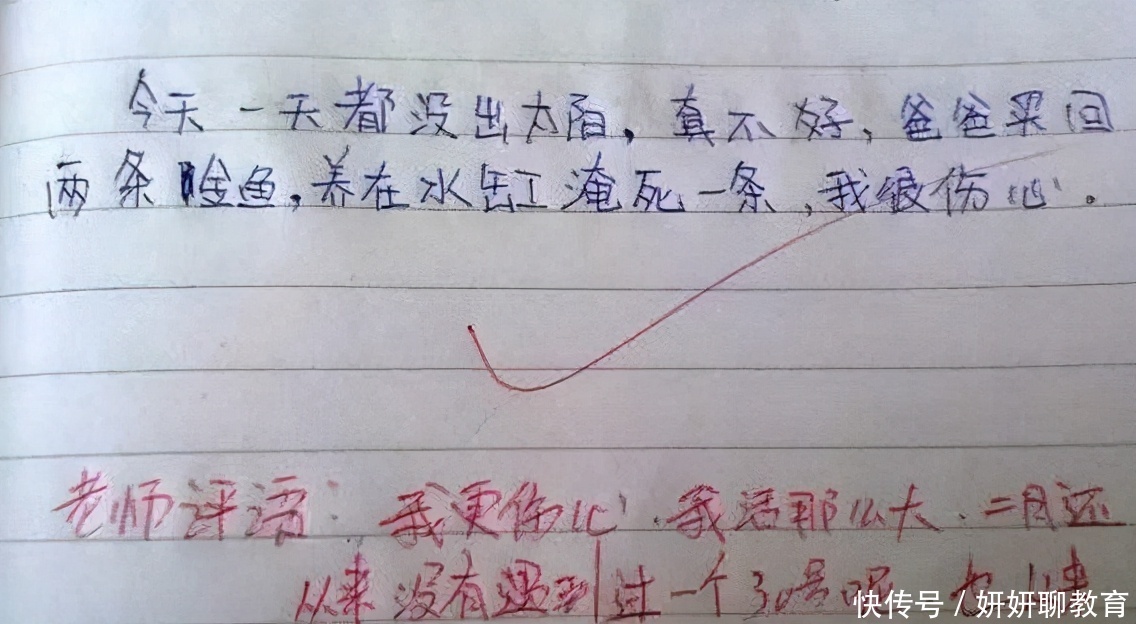 今天一天都没出太阳，真不好，爸爸买回
两条金鱼，养在水缸淹死一条，我很伤心。
老师评语：我更伤心 我活那么大 二月还
从来没有遇到过一个30号呢 也从来
快传号 / 妍妍聊教育